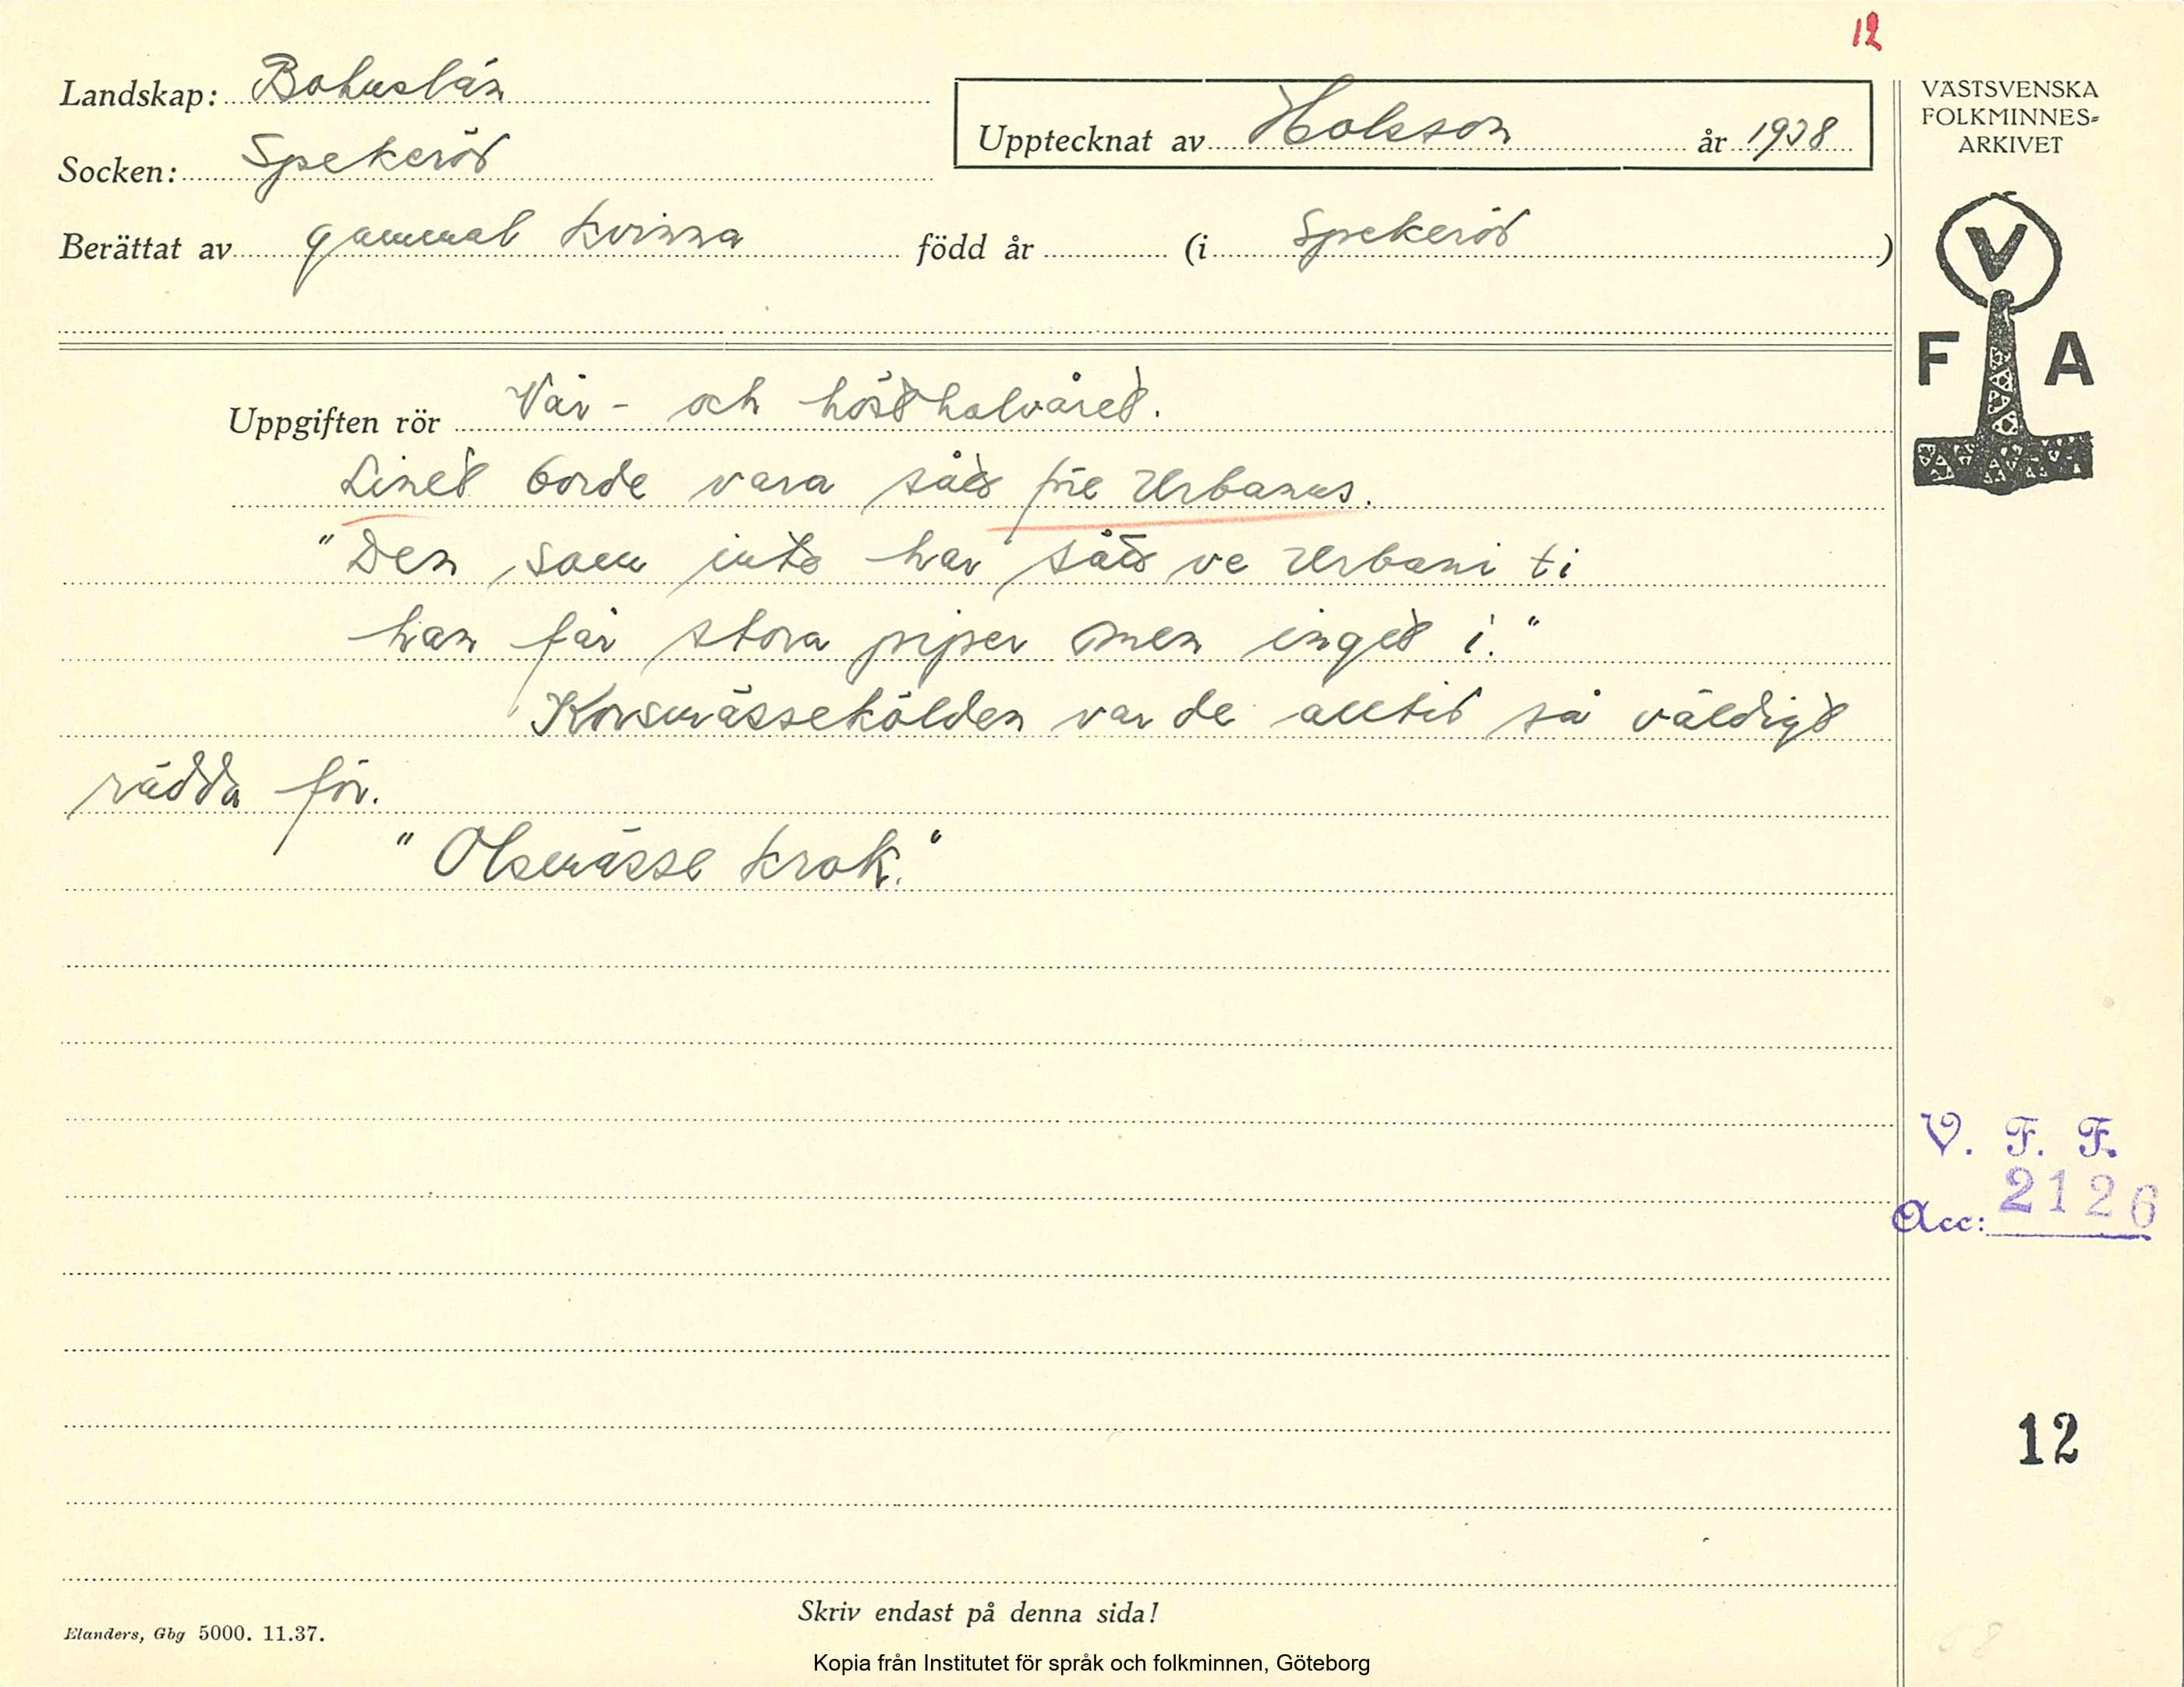 12
Landskap: Bohuslän
Upptecknat av Holsson år 1938
VÄSTSVENSKA
FOLKMINNES-
ARKIVET
Socken: Spekeröd
Berättat av gammal kvinna född år (i Spekeröd )
V
F A
Uppgiften rör Vår- och hösthalvåret.
Linet borde vara sått före Urbanus.
"Den som inte har sått ve Urbani ti
han får stora piper men inget i."
Korsmässekölden var de alltid så väldigt
rädda för.
"Olsmässe krok."
V. F. F.
Acc: 2126
12
Skriv endast på denna sida!
Elanders, Gbg 5000. 11.37.
Kopia från Institutet för språk och folkminnen, Göteborg